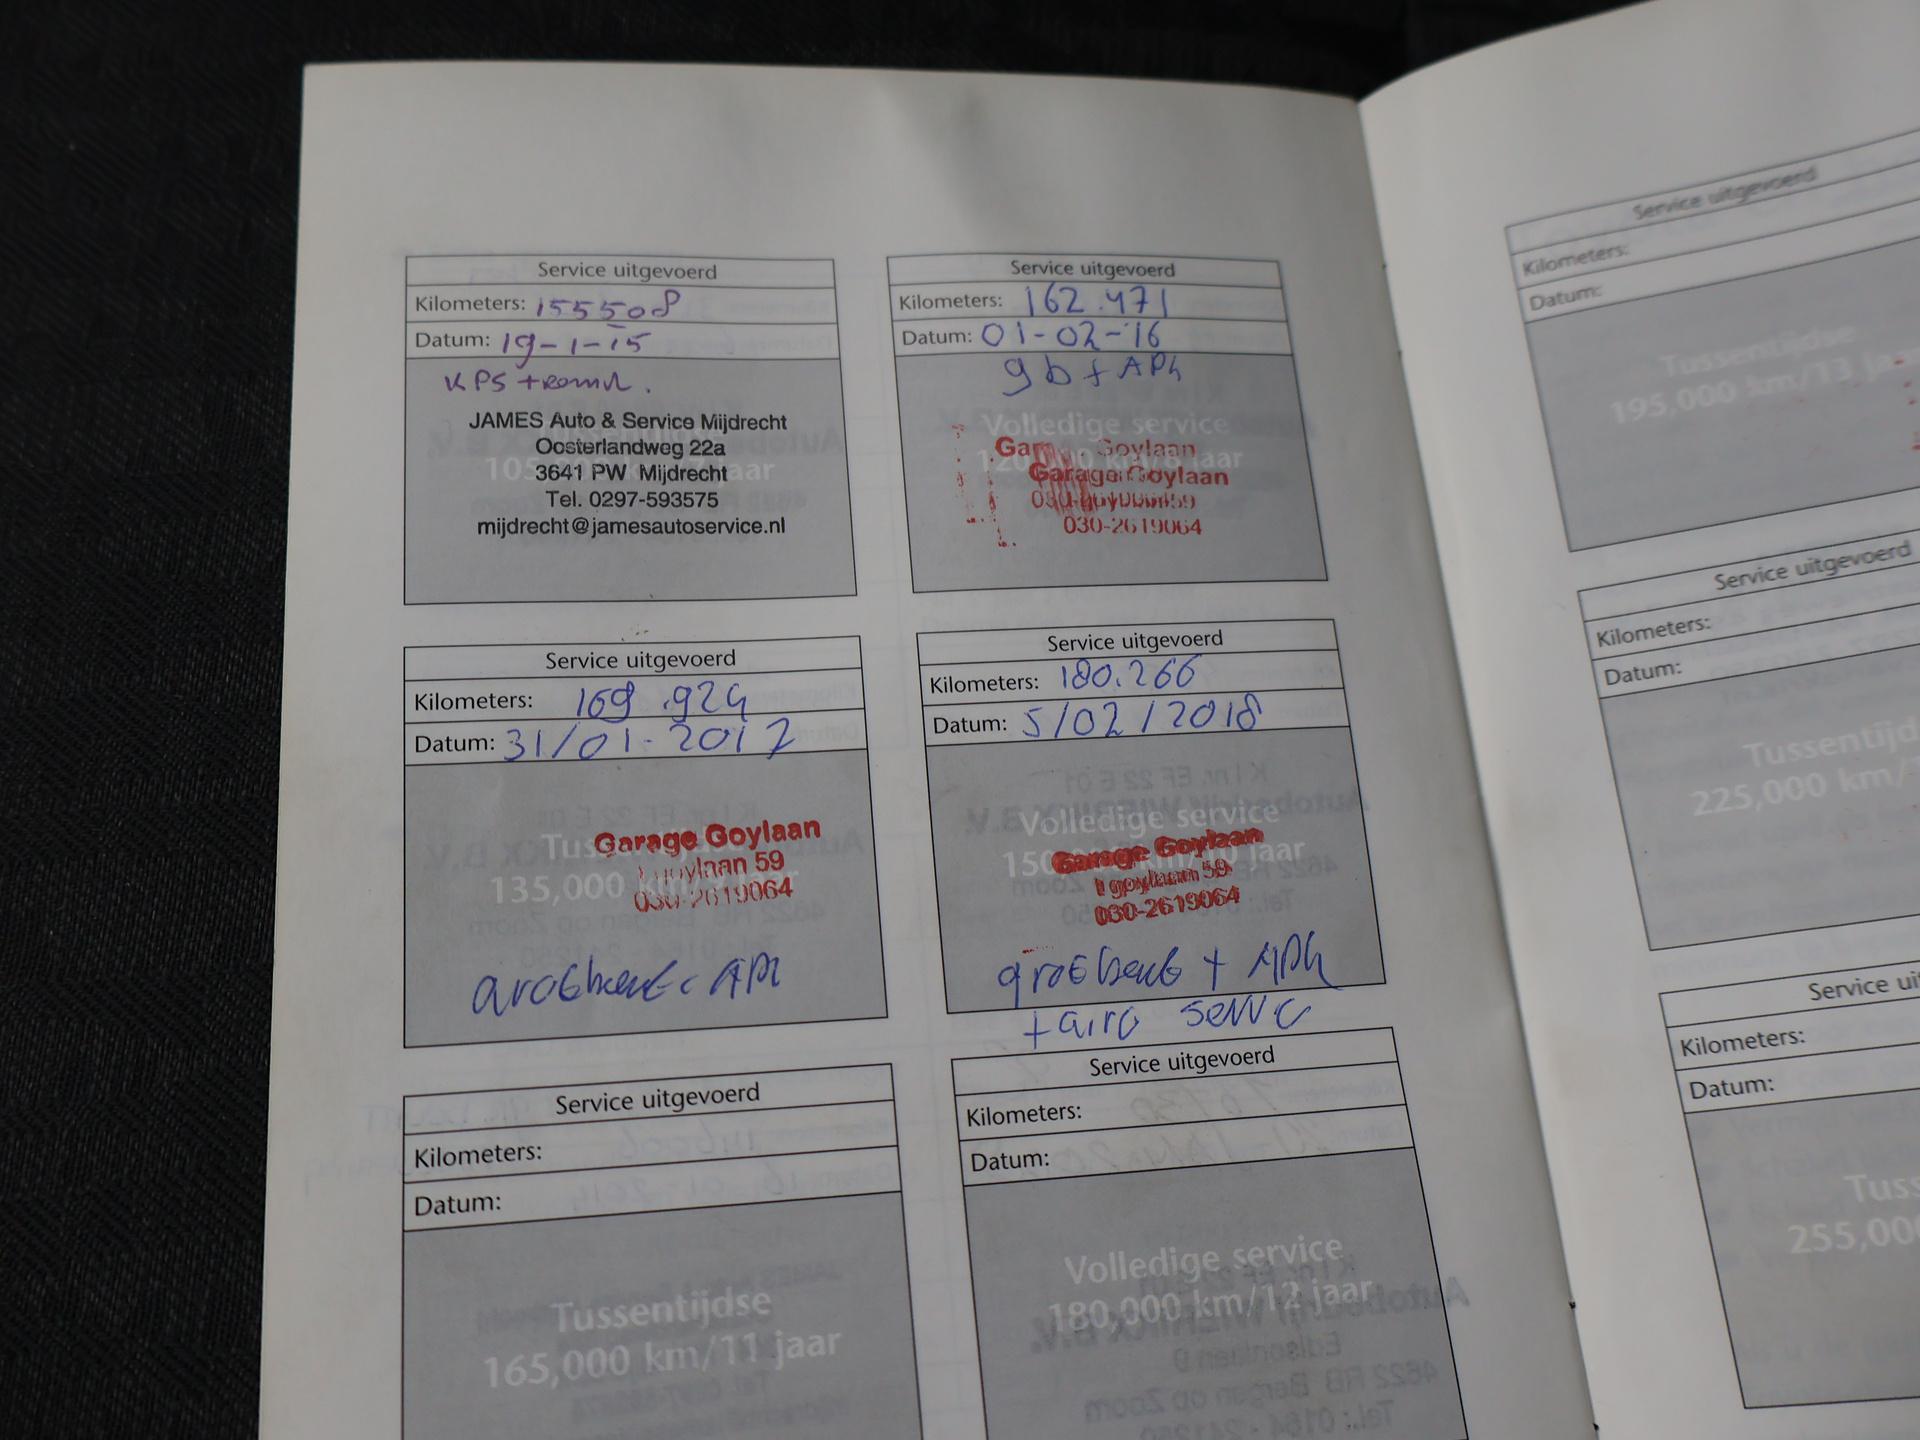 Service uitgevoerd
Kilometers: 155508
Datum: 19-1-15
KPS +
JAMES Auto & Service Mijdrecht
Oosterlandweg 22a
105,000 jaar
3641 PW Mijdrecht
Tel. 0297-593575
mijdrecht@jamesautoservice.nl
Service uitgevoerd
Kilometers: 162.471
Datum: 01-02-'16
gb + APK
Volledige service
Goylaan
120,000 km/8 jaar
Garage Goylaan
030-2619064
Service uitgevoerd
Kilometers: 169.924
Datum: 31/01-2017
Garage Goylaan
goylaan 59
135,000
030-2619064
APK
Service uitgevoerd
Kilometers: 180.266
Datum: 5/02/2018
Volledige service
Garage Goylaan
150,000 km/10 jaar
goylaan 59
030-2619064
grote beurt + APK
+ airo servic
Service uitgevoerd
Kilometers:
Datum:
Tussentijdse
165,000 km/11 jaar
Service uitgevoerd
Kilometers:
Datum:
Volledige service
180,000 km/12 jaar
Service uitgevoerd
Kilometers:
Datum:
Tussentijdse
195,000 km/13 jaar
Service uitgevoerd
Kilometers:
Datum:
Tussentijd
225,000 km/
Service ui
Kilometers:
Datum:
Tuss
255,00